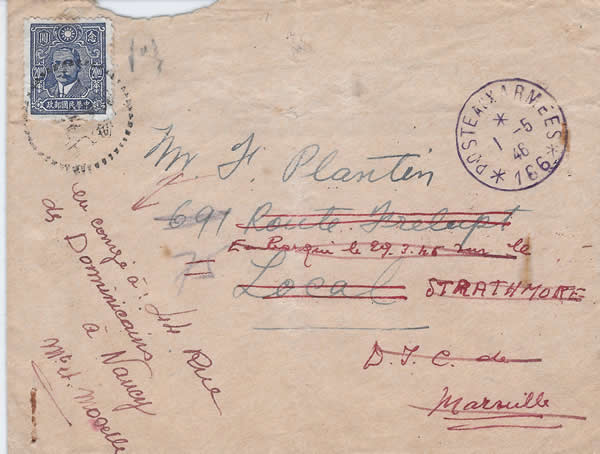 念 圓
20 00 20 00
政郵國民華中
POSTE AUX ARMÉES
* 1 -5
46
* 166 *
Mr F. Plantin
691 Route Frelupt
Embarqué le 29.3.46 sur le
Local STRATHMORE
D.I.C. de
Marseille
en congé à : 44 Rue
des Dominicains
à Nancy
Mthe et Moselle